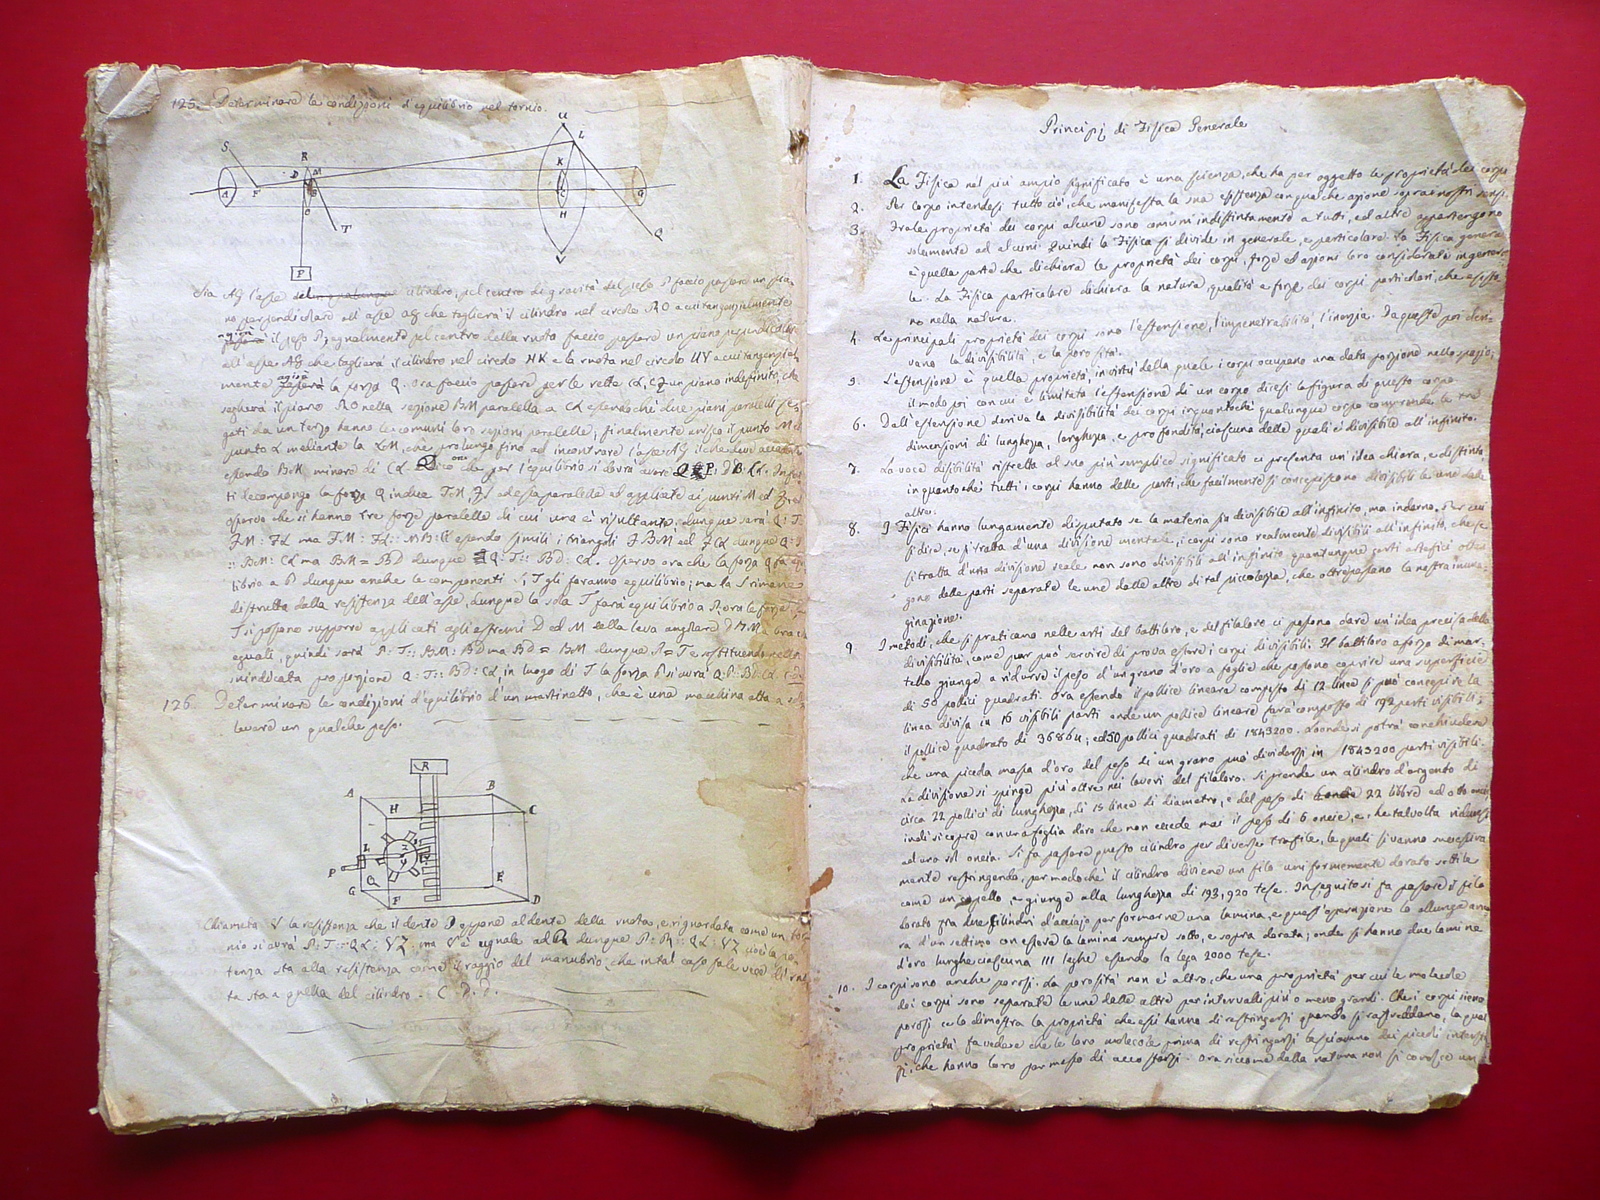 125. Determinare le condizioni d'equilibrio nel tornio.
U
S R L
K
D M
A F B C G
O H
T Q
V
P
Sia AG l'asse del cilindro, pel centro di gravità del peso P faccio passare un pia-
no perpendicolare all'asse AG che taglierà il cilindro nel circolo RO a cui tangenzialmente
agirà il peso P, egualmente pel centro della ruota faccio passare un piano perpendicolare
all'asse AG che taglierà il cilindro nel circolo HK e la ruota nel circolo UV a cui tangenzial-
mente agirà la forza Q. Ora faccio passare per le rette un piano indefinito, che
segherà il piano RO nella sezione BM paralella a CL essendoché due piani paralelli se-
gati da un terzo hanno le comuni loro sezioni paralelle; finalmente unisco il punto M col
punto L mediante la LM, che prolungo fino ad incontrare l'asse AG il che deve accadere
essendo BM minore di CL. Dico che per l'equilibrio si dovrà avere Q:P::DB:CL. Infat-
ti decompongo la forza Q in due T, S ad essa paralelle ed applicate ai punti M ed F ed
osservo che si hanno tre forze paralelle di cui una è risultante; dunque sarà Q:T::
FM:FL ma FM:FL::MB:CL essendo simili i triangoli FBM ed FCL dunque Q:T
::BM:CL ma BM=BD dunque Q:T::BD:CL. Osservo ora che la forza Q fa equi-
librio a P dunque anche le componenti S, T gli faranno equilibrio; ma la S rimane
distrutta dalla resistenza dell'asse, dunque la sola T farà equilibrio a P, ora le forze
T si possano supporre applicati agli estremi D ed M della leva angolare DBM a braccia
eguali, quindi sarà P:T::BM:BD ma BD=BM dunque P=T e sostituendo nella
suindicata proporzione Q:T::BD:CL, in luogo di T la forza P si avrà Q:P::BD:CL
126. Determinare le condizioni d'equilibrio d'un martinetto, che è una macchina atta a sol-
levare un qualche peso.
R
A B
H C
L
P Q
G E
F D
Chiamata V la resistenza che il dente D oppone al dente della ruota, e riguardata come un tor-
nio si avrà
tenza sta alla resistenza come il raggio del manubrio, che in tal caso fa le veci di ruo-
ta sta a quella del cilindro. C. D. D.
Principj di Fisica Generale
1. La Fisica nel più ampio significato è una scienza, che ha per oggetto le proprietà dei corpi
2. Per corpo intendesi tutto ciò, che manifesta la sua esistenza con qualche azione sopra i nostri sensi.
3. Tra le proprietà dei corpi alcune sono comuni indistintamente a tutti, ed altre appartengono
solamente ad alcuni. Quindi la Fisica si divide in generale, e particolare. La Fisica genera-
è quella parte che dichiara le proprietà dei corpi, forze ed azioni loro considerate in genera-
le. La Fisica particolare dichiara la natura, qualità e forze dei corpi particolari, che esisto-
no nella natura.
4. Le principali proprietà dei corpi sono l'estensione, l'impenetrabilità, l'inerzia. Da queste poi deri-
vano la divisibilità, e la porosità.
5. L'estensione è quella proprietà, in virtù della quale i corpi occupano una data porzione nello spazio,
il modo poi con cui è limitata l'estensione di un corpo dicesi la figura di questo corpo.
6. Dall'estensione deriva la divisibilità dei corpi inquantoché qualunque corpo comprende le tre
dimensioni di lunghezza, larghezza, e profondità, ciascuna delle quali è divisibile all'infinito.
7. La voce disibilità ristretta al suo più semplice significato ci presenta un'idea chiara, e distinta
inquantoché tutti i corpi hanno delle parti, che facilmente si concepiscono divisibili le une dalle
altre.
8. I Fisici hanno lungamente disputato se la materia sia divisibile all'infinito, ma indarno. Per cui
si dice, se si tratta d'una divisione mentale, i corpi sono realmente divisibili all'infinito, che se
si tratta d'una divisione reale non sono divisibili all'infinito quantunque parti artefici otten-
gono delle parti separate le une dalle altre di tal picciolezza, che oltrepassano la nostra imma-
ginazione.
9. I metodi, che si praticano nelle arti del battiloro, e del filaloro ci possono dare un'idea precisa della
divisibilità, come pur può servire di prova essere i corpi divisibili. Il battiloro a forza di mar-
tello giunge a ridurre il peso d'un grano d'oro a foglie che possono coprire una superficie
di 50 pollici quadrati. Ora essendo il pollice lineare composto di 12 linee si può concepire la
linea divisa in 16 visibili parti onde un pollice lineare sarà composto di 192 parti visibili;
il pollice quadrato di 36864; ed 50 pollici quadrati di 1843200. Laonde si potrà conchiudere
che una piccola massa d'oro del peso di un grano può dividersi in 1843200 parti visibili.
La divisione si spinge più oltre nei lavori del filaloro. Si prende un cilindro d'argento di
circa 22 pollici di lunghezza, di 15 linee di diametro, e del peso di 22 libbre ed otto oncie
indi si copre con una foglia d'oro che non eccede mai il peso di 6 oncie, e che talvolta riducesi
ad una sol oncia. Si fa passare questo cilindro per diverse trafile, le quali si vanno successiva-
mente restringendo, per modo che il cilindro diviene un filo uniformemente dorato sottile
come un capello, e giunge alla lunghezza di 193,920 tese. In seguito si fa passare il filo
dorato fra due cilindri d'acciajo per formarne una lamina, e quest'operazione lo allunga anco-
ra d'un settimo con essere la lamina sempre sotto, e sopra dorata; onde si hanno due lamine
d'oro lunghe ciascuna 111 leghe essendo la lega 2000 tese.
10. I corpi sono anche porosi. La porosità non è altro, che una proprietà per cui le molecole
dei corpi sono separate le une dalle altre per intervalli più o meno grandi. Che i corpi siano
porosi ce lo dimostra la proprietà che essi hanno di restringersi quando si raffreddano, la qual
proprietà fa vedere che le loro molecole prima di restringersi lasciavano dei piccoli interstiz-
zi, che hanno loro permesso di accostarsi. Ora siccome dalla natura non si conosce un